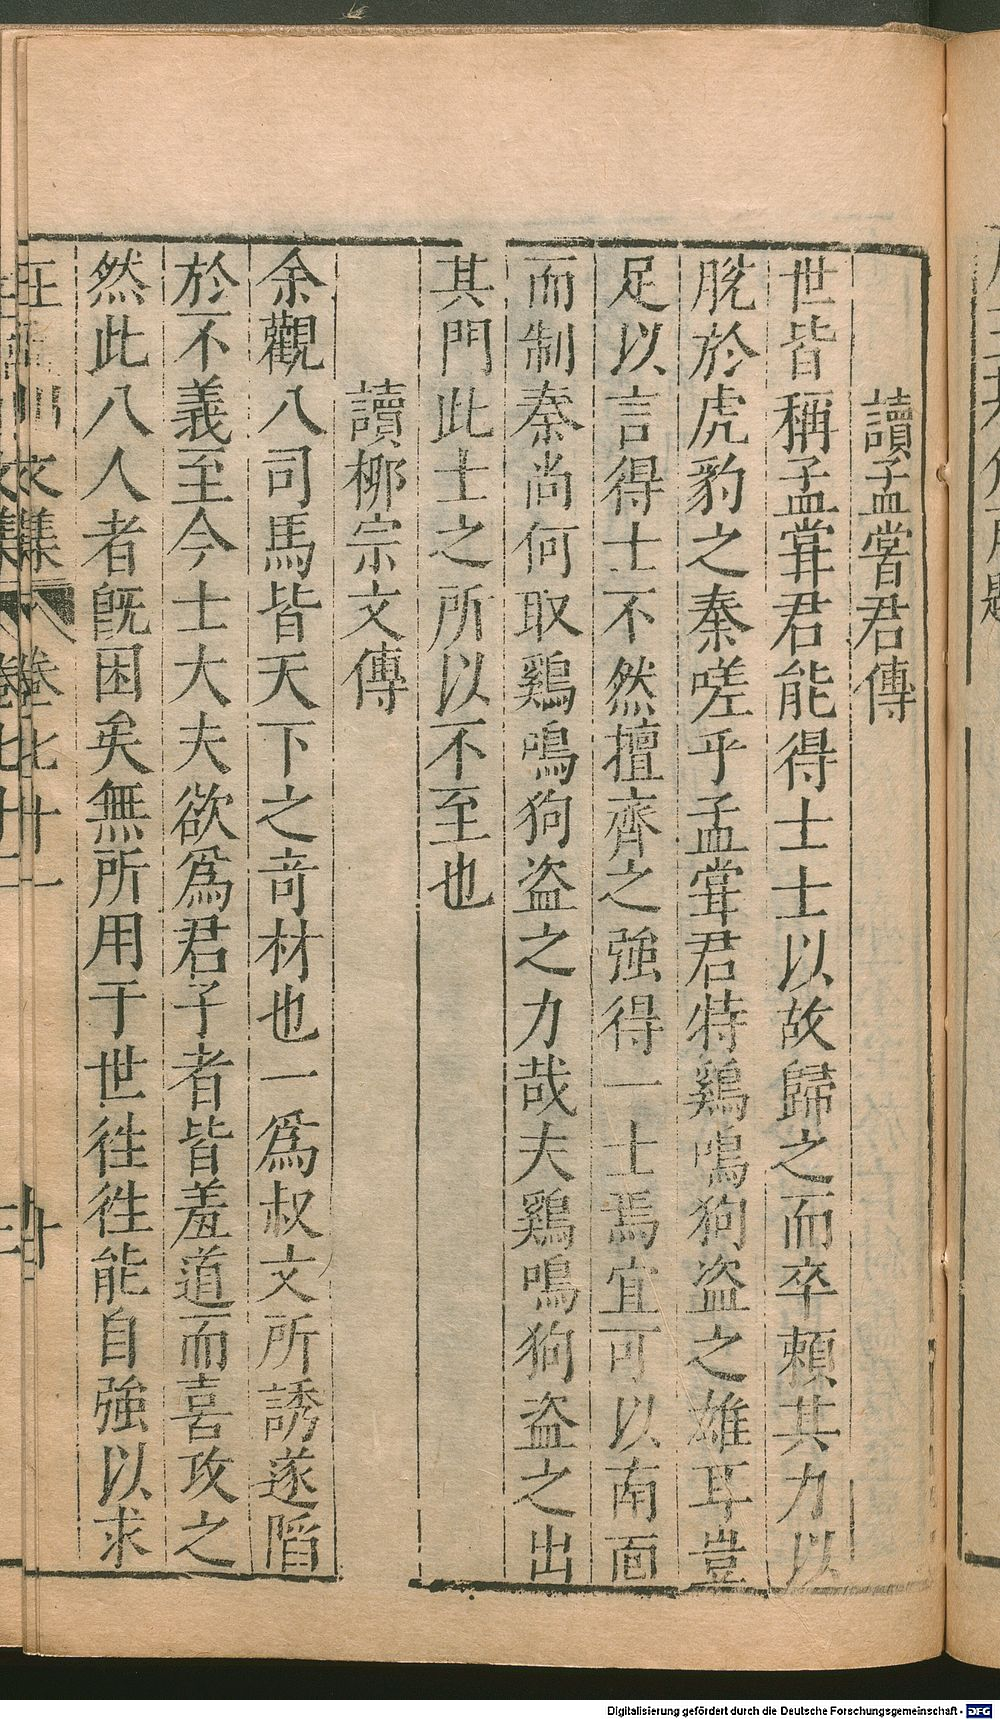 讀孟嘗君傳
世皆稱孟甞君能得士士以故歸之而卒頼其力以
脫於虎豹之秦嗟乎孟甞君特鷄鳴狗盗之雄耳豈
足以言得士不然擅齊之強得一士焉宜可以南面
而制秦尚何取鷄鳴狗盗之力哉夫鷄鳴狗盗之出
其門此士之所以不至也
讀栁宗文傳
余觀八司馬皆天下之竒材也一爲叔文所誘遂䧟
於不義至今士大夫欲爲君子者皆羞道而喜攻之
然此八人者旣困矣無所用于世徃徃能自強以求
文集 卷七十一
Digitalisierung gefördert durch die Deutsche Forschungsgemeinschaft - DFG